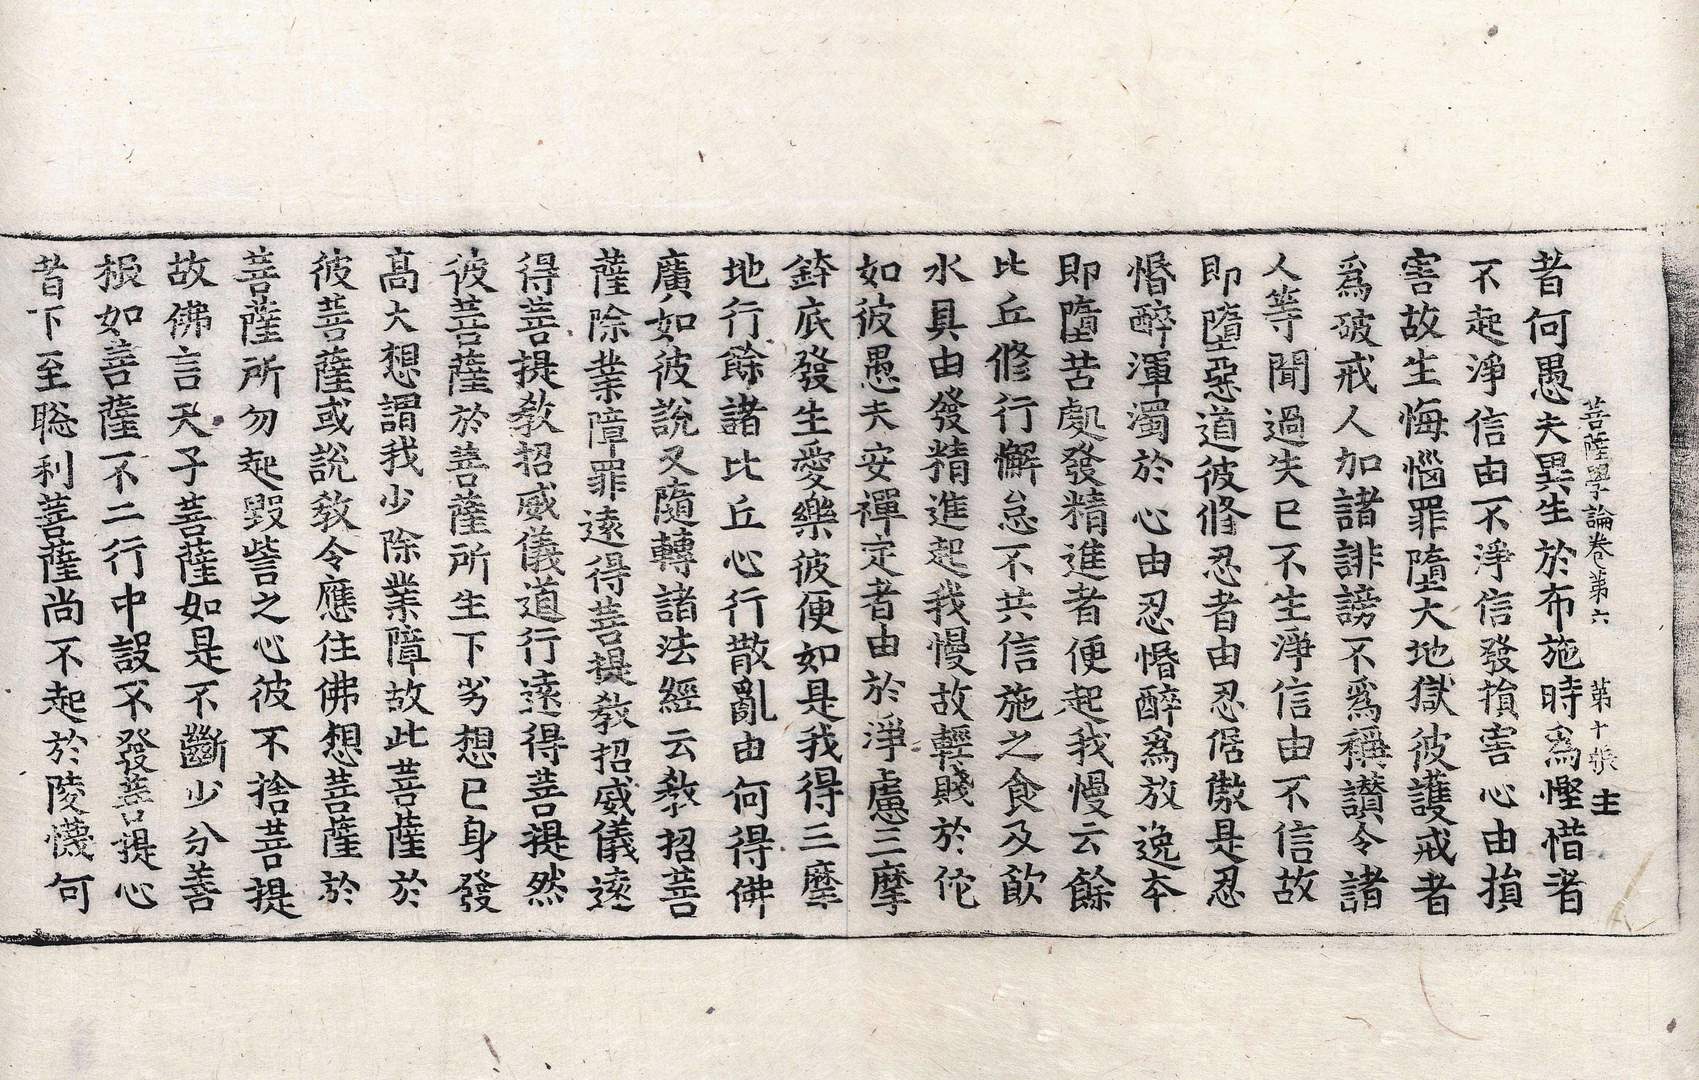 菩薩學論卷第六　第十張　主
者何愚夫異生於布施時爲慳惜者
不起淨信由不淨信發損害心由損
害故生悔惱罪墮大地獄彼護戒者
爲破戒人加諸誹謗不爲稱讃令諸
人等聞過失已不生淨信由不信故
即墮惡道彼修忍者由忍倨慠是忍
惛醉渾濁於心由忍惛醉爲放逸本
即墮苦處發精進者便起我慢云餘
比丘修行懈怠不共信施之食及飮
水具由發精進起我慢故輕賤於佗
如彼愚夫安禪定者由於淨慮三摩
鉢底發生愛樂彼便如是我得三摩
地行餘諸比丘心行散亂由何得佛
廣如彼說又隨轉諸法經云教招菩
薩除業障罪遠得菩提教招威儀遠
得菩提教招威儀道行遠得菩提然
彼菩薩於菩薩所生下劣想已身發
高大想謂我少除業障故此菩薩於
彼菩薩或說教令應住佛想菩薩於
菩薩所勿起毀訾之心彼不捨菩提
故佛言天子菩薩如是不斷少分善
根如菩薩不二行中設不發菩提心
者下至聡利菩薩尚不起於陵懱何